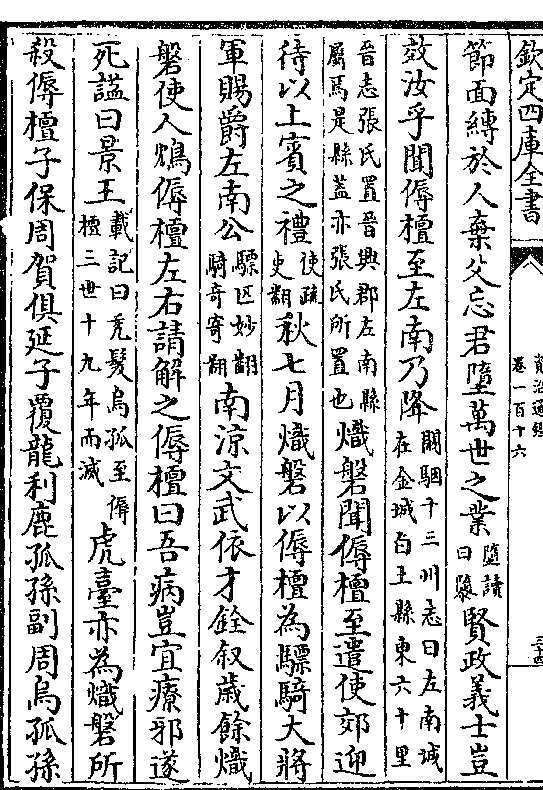 欽定四庫全書
資治通鑑
卷一百十六
三十四
節面縛於人棄父忘君墮萬世之業墮讀曰隳賢政義士豈
效汝乎聞傉檀至左南乃降闞駰十三州志曰左南城在金城白土縣東六十里
晉志張氏置晉興郡左南縣屬焉是縣蓋亦張氏所置也熾磐聞傉檀至遣使郊迎
待以上賓之禮使疏吏翻秋七月熾磐以傉檀為驃騎大將
軍賜爵左南公驃匹妙翻騎奇寄翻南涼文武依才銓叙歲餘熾
磐使人鴆傉檀左右請解之傉檀曰吾病豈宜療邪遂
死諡曰景王載記曰禿髮烏孤至傉檀三世十九年而滅虎臺亦為熾磐所
殺傉檀子保周賀俱延子覆龍利鹿孤孫副周烏孤孫